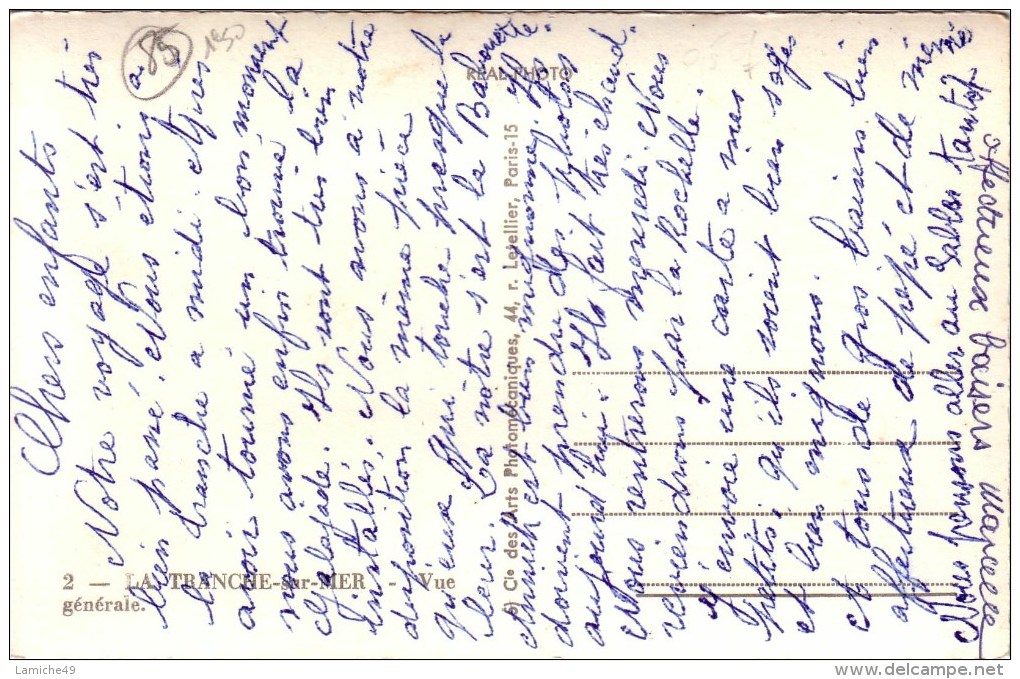 85
1950
REAL-PHOTO
Chers enfants
Notre voyage s'est très
bien passé. Nous étions a
la tranche a midi. Après
avoir tourné un bon moment
nous avons enfin trouvé la
Ils sont très bien
installés. Nous avons a notre
disposition la même pièce
qu'eux qui touche presque la
leur. La notre s'est la Baboucette.
Annick est bien mignonne, ils
doivent prendre des photos
aujourd'hui. Il fait très chaud.
Nous rentrerons mercredi. Nous
reviendrons par la Rochelle.
J'envoie une carte a mes
petits, qu'ils soient bien sages
et bien mignons.
A tous de gros baisers bien
affectueux de pépé et de mémé
Nous pensons aller au Sables tantôt.
affectueux baisers Marcelle
Cie des Arts Photomécaniques, 44, r. Letellier, Paris-15
2 — LA TRANCHE-sur-MER - Vue
générale.
Lamiche49
www.delcampe.net